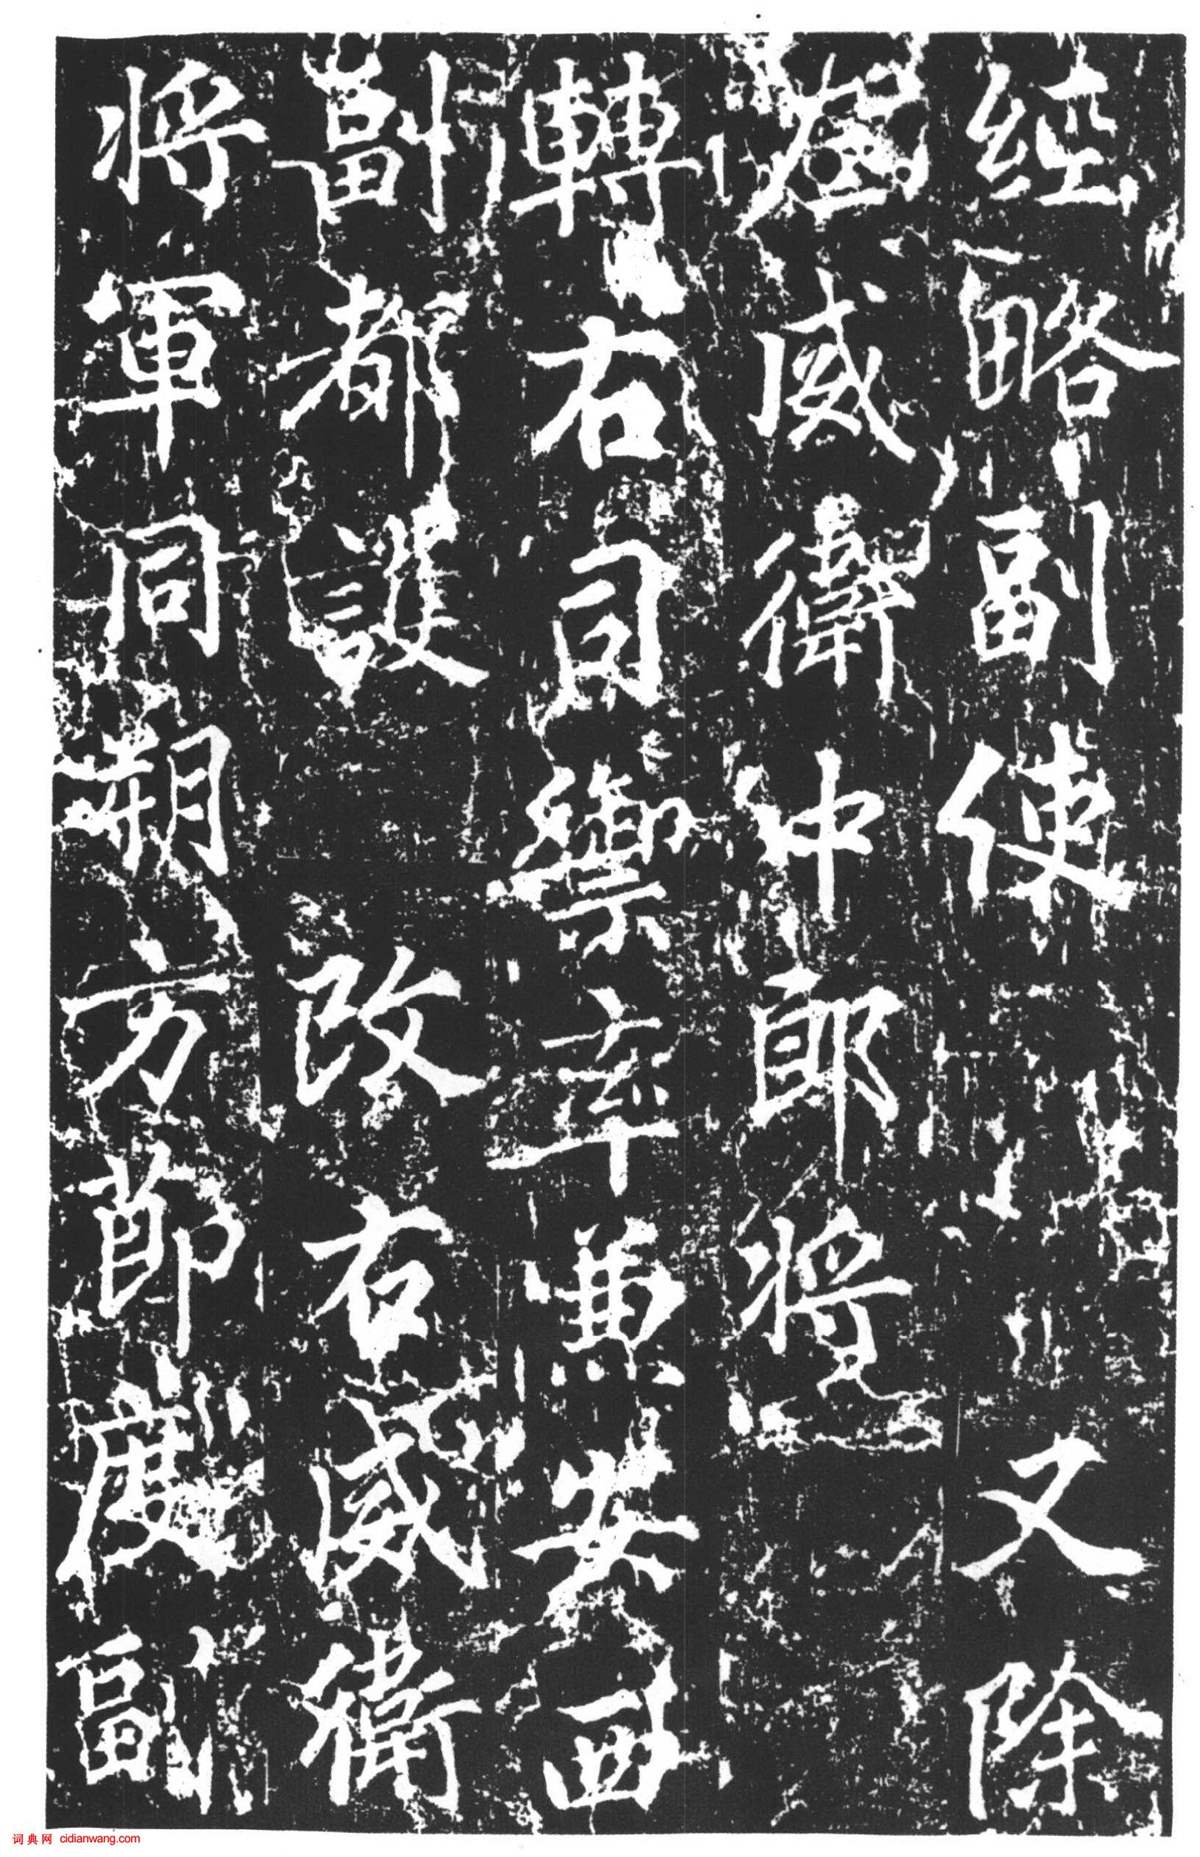 經略副使 又除
左威衛中郎將
轉右司禦率兼安西
副都護 改右威衛
將軍同朔方節度副
词典网 cidianwang.com